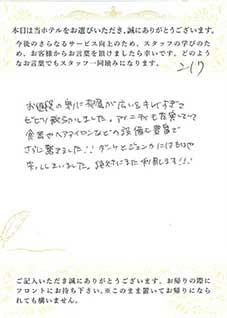 本日は当ホテルをお選びいただき、誠にありがとうございます。
今後のさらなるサービス向上のため、スタッフの学びのため、お客様からお言葉を頂けましたら幸いです。どのようなお言葉でもスタッフ一同励みになります。
217
お値段の割に部屋が広いしキレイすぎて
ビビり散らかしました。アメニティも充実していて
食器やヘアアイロンなどの設備も豊富で
さらに驚きました!!
しまいました。絶対にまた利用します!!!
ご記入いただき誠にありがとうございます。お帰りの際に
フロントにお持ち下さい。※このまま置いてお帰りになられても構いません。